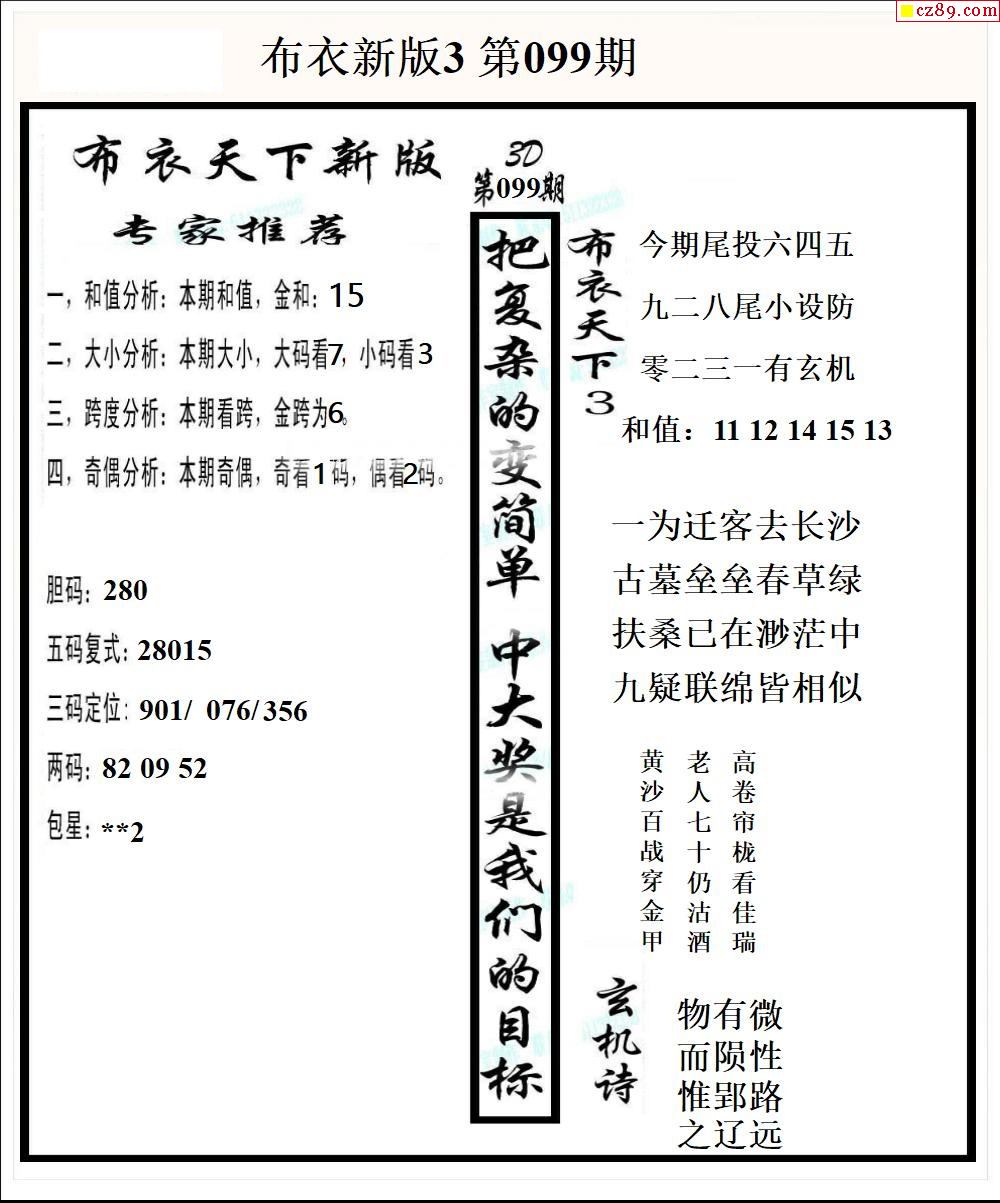 cz89.com
布衣新版3 第099期
布衣天下新版
专家推荐
一，和值分析：本期和值，金和：15
二，大小分析：本期大小，大码看7，小码看3
三，跨度分析：本期看跨，金跨为6。
四，奇偶分析：本期奇偶，奇看1码，偶看2码。
胆码：280
五码复式：28015
三码定位：901/ 076/356
两码：82 09 52
包星：**2
3D
第099期
把复杂的变简单 中大奖是我们的目标
布衣天下3
今期尾投六四五
九二八尾小设防
零二三一有玄机
和值：11 12 14 15 13
一为迁客去长沙
古墓垒垒春草绿
扶桑已在渺茫中
九疑联绵皆相似
高卷帘栊看佳瑞
老人七十仍沽酒
黄沙百战穿金甲
玄机诗
物有微
而陨性
惟郢路
之辽远